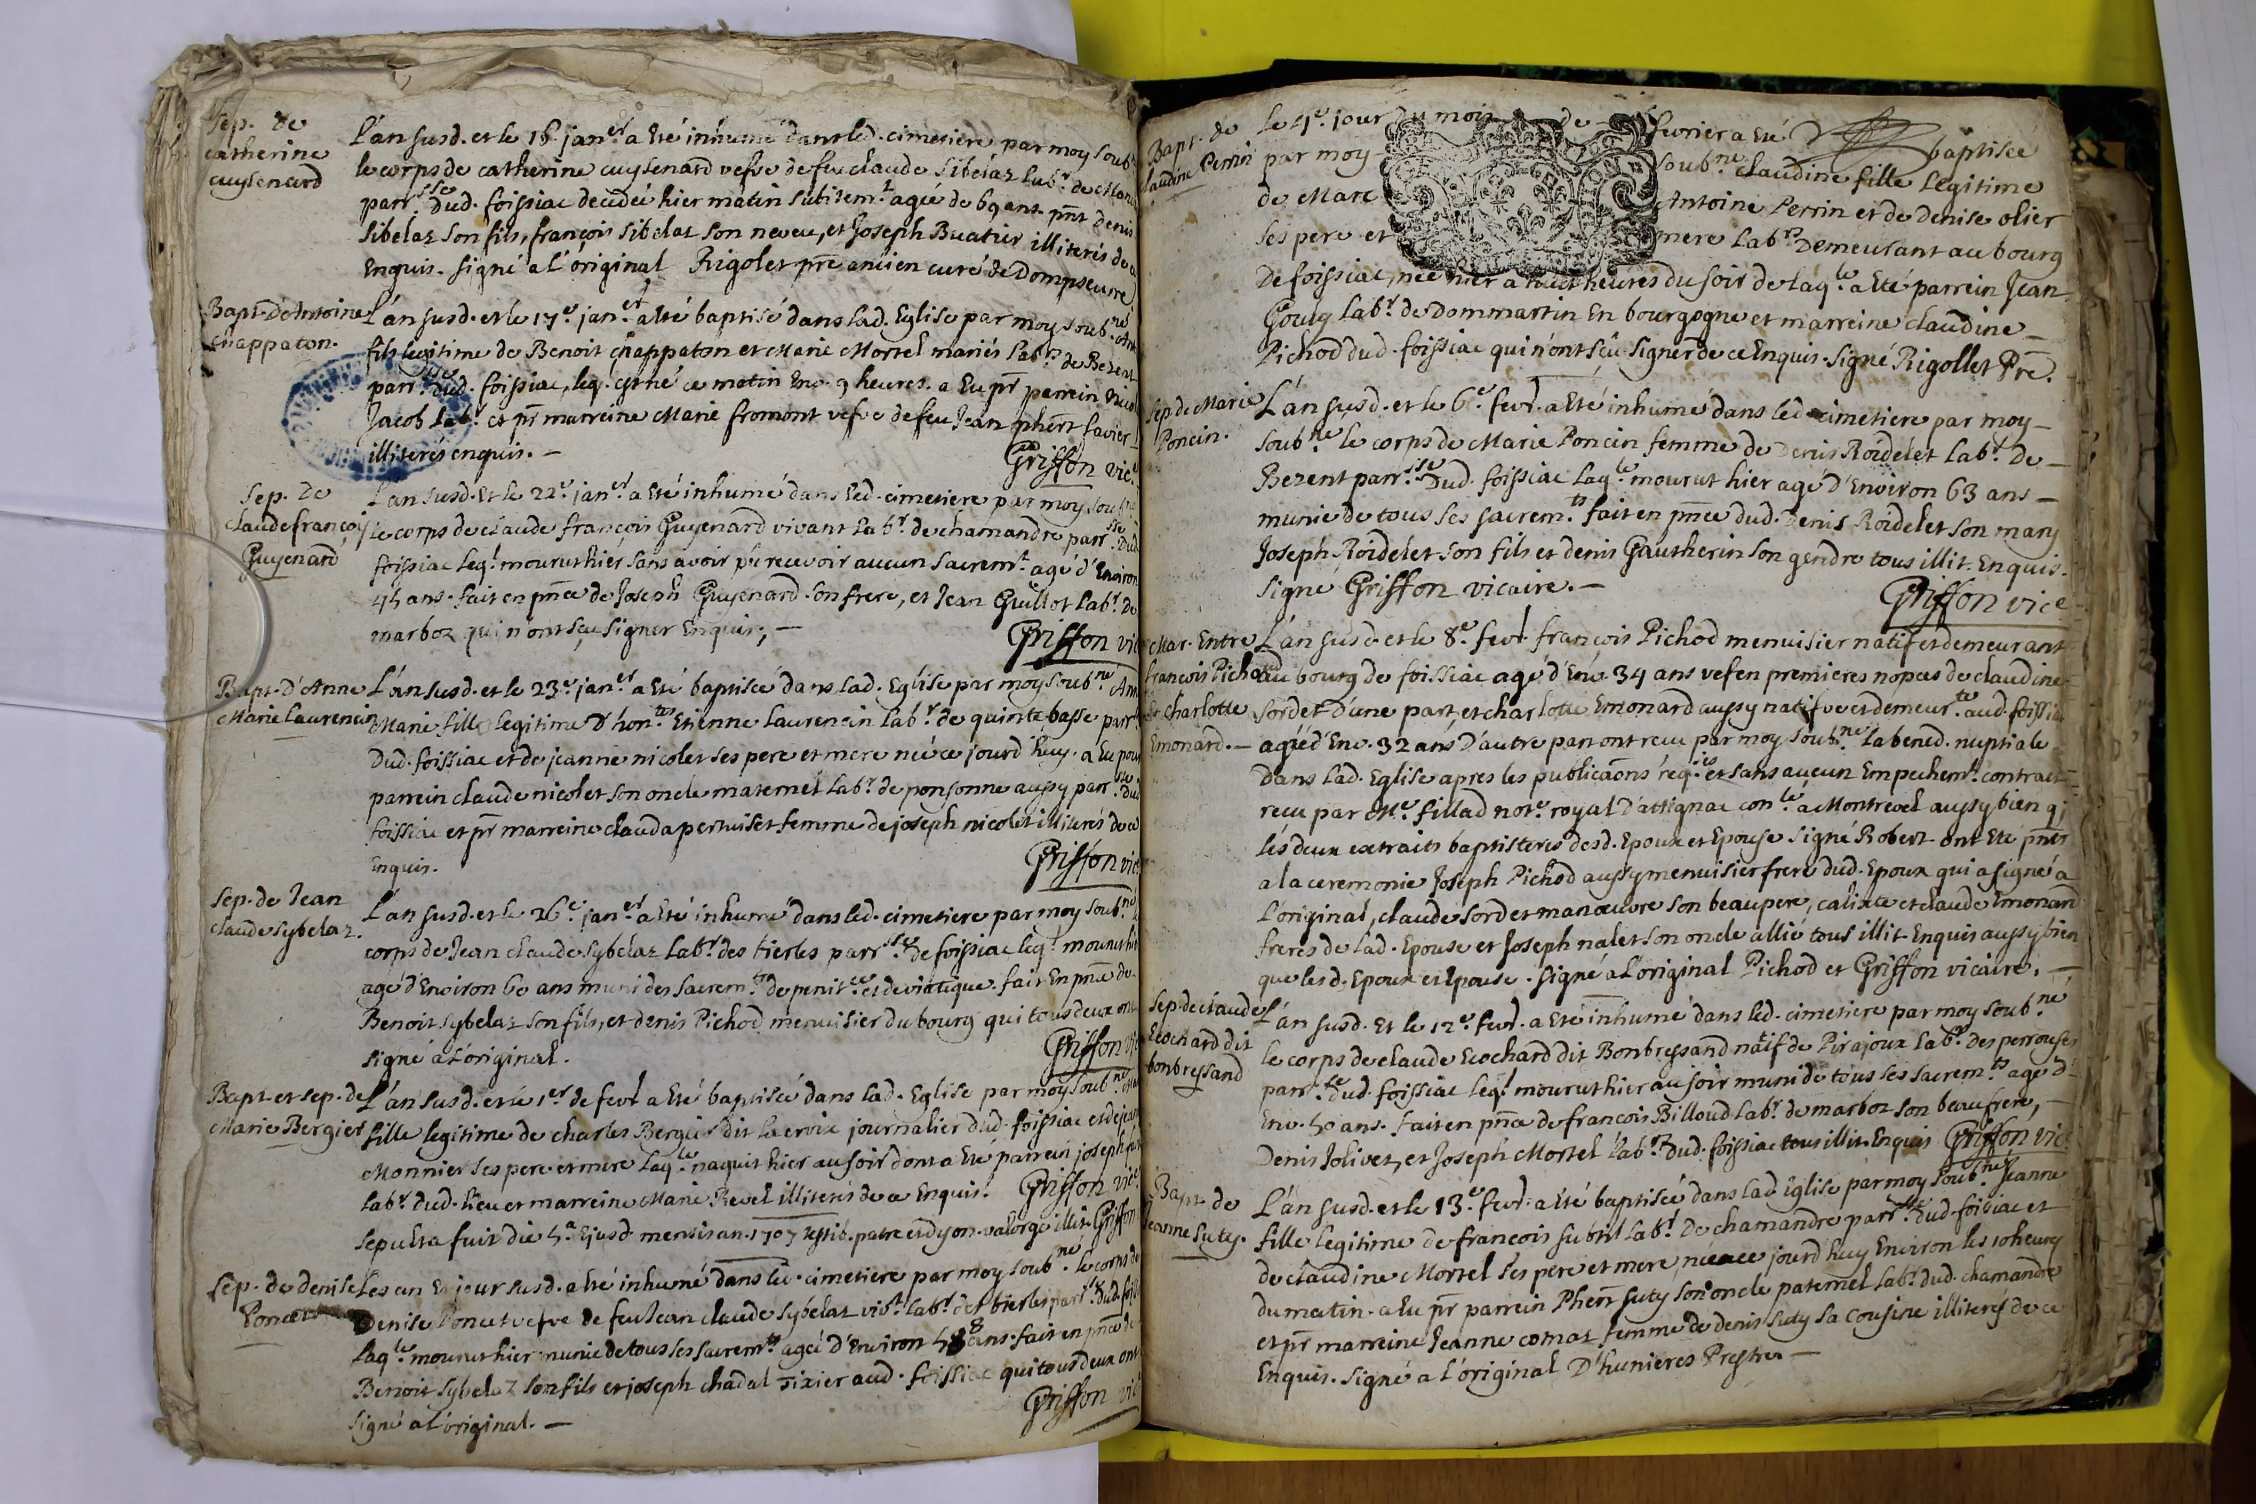 Sep. de
catherine
cuysenard
L'an susd. et le 15e. janer a Eté inhumé dans led. cimetiere par moy soub
le corps de catherine cuysenard vefve de feu claude Sibelaz labr. de
parrsse. dud. foissiac decedée hier matin subitemt. agée de 69 ans. pnt Denis
Sibelaz son fils, françois Sibelaz son neveu, et Joseph Buatier illiterés de ce
Enquis. signé a l'original Rigolet pre ancien curé de Dompseurre
Bapt. d'Antoine
chappaton.
L'an susd. et le 17e. janer. a Eté baptisé dans lad. Eglise par moy soubné. Ant
fils legitime de Benoit chappaton et Marie Mortel mariés labrs. de Bezent
parrsse. dud. foissiac, leq. est né ce matin Env. 9 heures. a Eu pr parrein
Jacob labr. et pr marreine Marie fromont vefve de feu Jean phert favier
illiterés enquis. —
Griffon vice
Sep. de
claude françois
Guyenard
L'an susd. Et le 22e. janer a Eté inhumé dans led. cimetiere par moy soubné
le corps de claude françois Guyenard vivant labr. de chamandre parrsse. dud.
foissiac leql. mourut hier sans avoir pû recevoir aucun sacremt. agé d'Environ
45 ans. fait en pnce de Joseph Guyenard son frere, et Jean Guillot labr. de
marboz qui n'ont sçu signer Enquis; —
Griffon vic
Bapt. d'Anne
Marie laurencin
L'an susd. et le 23e. janer a Eté baptisée dans lad. Eglise par moy soubné Anne
Marie fille legitime d'honte. Etienne laurencin labr. de quinte basse parr
dud. foissiac et de jeanne nicolet ses pere et mere née ce jourd'huy. a Eu pour
parrein claude nicolet son oncle maternel labr. de ponsonne aussy parrsse. dud
foissiac et pr marreine clauda pertuiset femme de joseph nicolet illiterés de ce
Enquis.
Griffon vic
Sep. de Jean
claude Sybelaz.
L'an susd. et le 26e. janer a Eté inhumé dans led. cimetiere par moy soubné
corps de Jean claude Sybelaz labr. des bierles parrsse. de foissiac leql. mourut hier
agé d'Environ 60 ans muni des sacremts. de penitce. et de viatique. fait En pnce de
Benoit Sybelaz son fils, et denis Pichod menuisier du bourg qui tous deux ont
signé a l'original.
Griffon vic
Bapt. et sep. de
Marie Bergier
L'an susd. et le 1er. de fevr. a Eté baptisée dans lad. Eglise par moy soubné
fille legitime de charles Bergier dit lacroix journalier dud. foissiac et de jeanne
Monnier ses pere et mere laqle. naquit hier au soir dont a Eté parrein joseph
labr. dud. lieu et marreine Marie Revel illiterés de ce Enquis. Griffon vice.
sepulta fuit die 5a Ejusd. mensis an. 1707 testib. patre et dyon. valorge illit. Griffon
Sep. de denise
Poncet
Les an Et jour susd. a Eté inhumé dans led. cimetiere par moy soubné. le corps de
Denise Poncet vefve de feu Jean claude Sybelaz vivt. labr. des bierles parrsse. dud. foiss
laqle. mourut hier munie de tous ses sacremts. agée d'Environ 58 ans. fait en pnce de
Benoit Sybelaz son fils et joseph chadal Tixier aud. foissiac qui tous deux ont
signé a l'original. —
Griffon vic
Bapt. de
claudine Perrin
le 4e. jour du mois de fevrier a Eté baptisée
par moy soubné. claudine fille Legitime
de Marc Antoine Perrin et de Denise olier
ses pere et mere labrs. Demeurant au bourg
de foissiac, née hier a huit heures du soir de laqle. a Eté parrein Jean
Gouly labr. de Dommartin En bourgogne et marreine claudine —
Pichod dud. foissiac qui n'ont sçû signer de ce Enquis. Signé Rigollet Pre.
Sep. de Marie
Poncin.
L'an susd. et le 6e. fevr. a Eté inhumé dans led. cimetiere par moy —
soubné le corps de Marie Poncin femme de Denis Roidelet labr. de —
Bezent parrsse. dud. foissiac laqle. mourut hier agé d'Environ 63 ans —
munie de tous ses sacremts. fait en pnce dud. Denis Roidelet son mary
Joseph Roidelet son fils et denis Gautherin son gendre tous illit. Enquis.
signé Griffon vicaire. —
Griffon vice
Mar. Entre
françois Pichod
et charlotte
Emonard. —
L'an susd. et le 8e. fevr. françois Pichod menuisier natif et demeurant
au bourg de foissiac agé d'Env. 34 ans vef en premieres nopces de claudine
Sordet d'une part, et charlotte Emonard aussy natifve et demeurte. aud. foissiac
agée d'Env. 32 ans d'autre part ont recu par moy soubné. la bened. nuptiale
dans lad. Eglise apres les publicaons reqses. et sans aucun Empechemt. contract
recu par Me. fillad note. royal d'attignac conlé. a Montrevel aussy bien q;
les deux extraits baptisteres desd. Epoux et Epouse signé Robert. ont Eté pnts
a la ceremonie Joseph Pichod aussy menuisier frere dud. Epoux qui a signé a
l'original, claude sordet manœuvre son beaupere, calixte et claude Emonard
freres de lad. Epouse et Joseph nalet son oncle allié tous illit. Enquis aussy bien
que lesd. Epoux et Epouse. signé a l'original Pichod et Griffon vicaire. —
Sep. de claude
Ecochard dit
bonbressand
L'an susd. Et le 12e. fevr. a Eté inhumé dans led. cimetiere par moy soubné
le corps de claude Ecochard dit Bonbressand natif de Pirajoux labr. des perrouses
parrsse. dud. foissiac leql. mourut hier au soir muni de tous ses sacremts. agé d'
Env. 50 ans. fait en pnce de françois Billoud labr. de marboz son beaufrere, —
Denis Jolivet, et Joseph Mortel labrs. dud. foissiac tous illit. Enquis Griffon vic.
Bapt. de
Jeanne Suty.
L'an susd. et le 13e. fevr. a Eté baptisée dans lad. Eglise par moy soubné. Jeanne
fille legitime de françois subtil labr. de chamandre parrsse. dud. foissiac et
de claudine Mortel ses pere et mere, née ce jourd'huy Environ les 10 heures
du matin. a Eu pr parrein Phert suty son oncle paternel labr. dud. chamandre
et pr marreine Jeanne comaz femme de denis Suty sa cousine illiterés de ce
Enquis. signé a l'original D'hunieres Prestre —